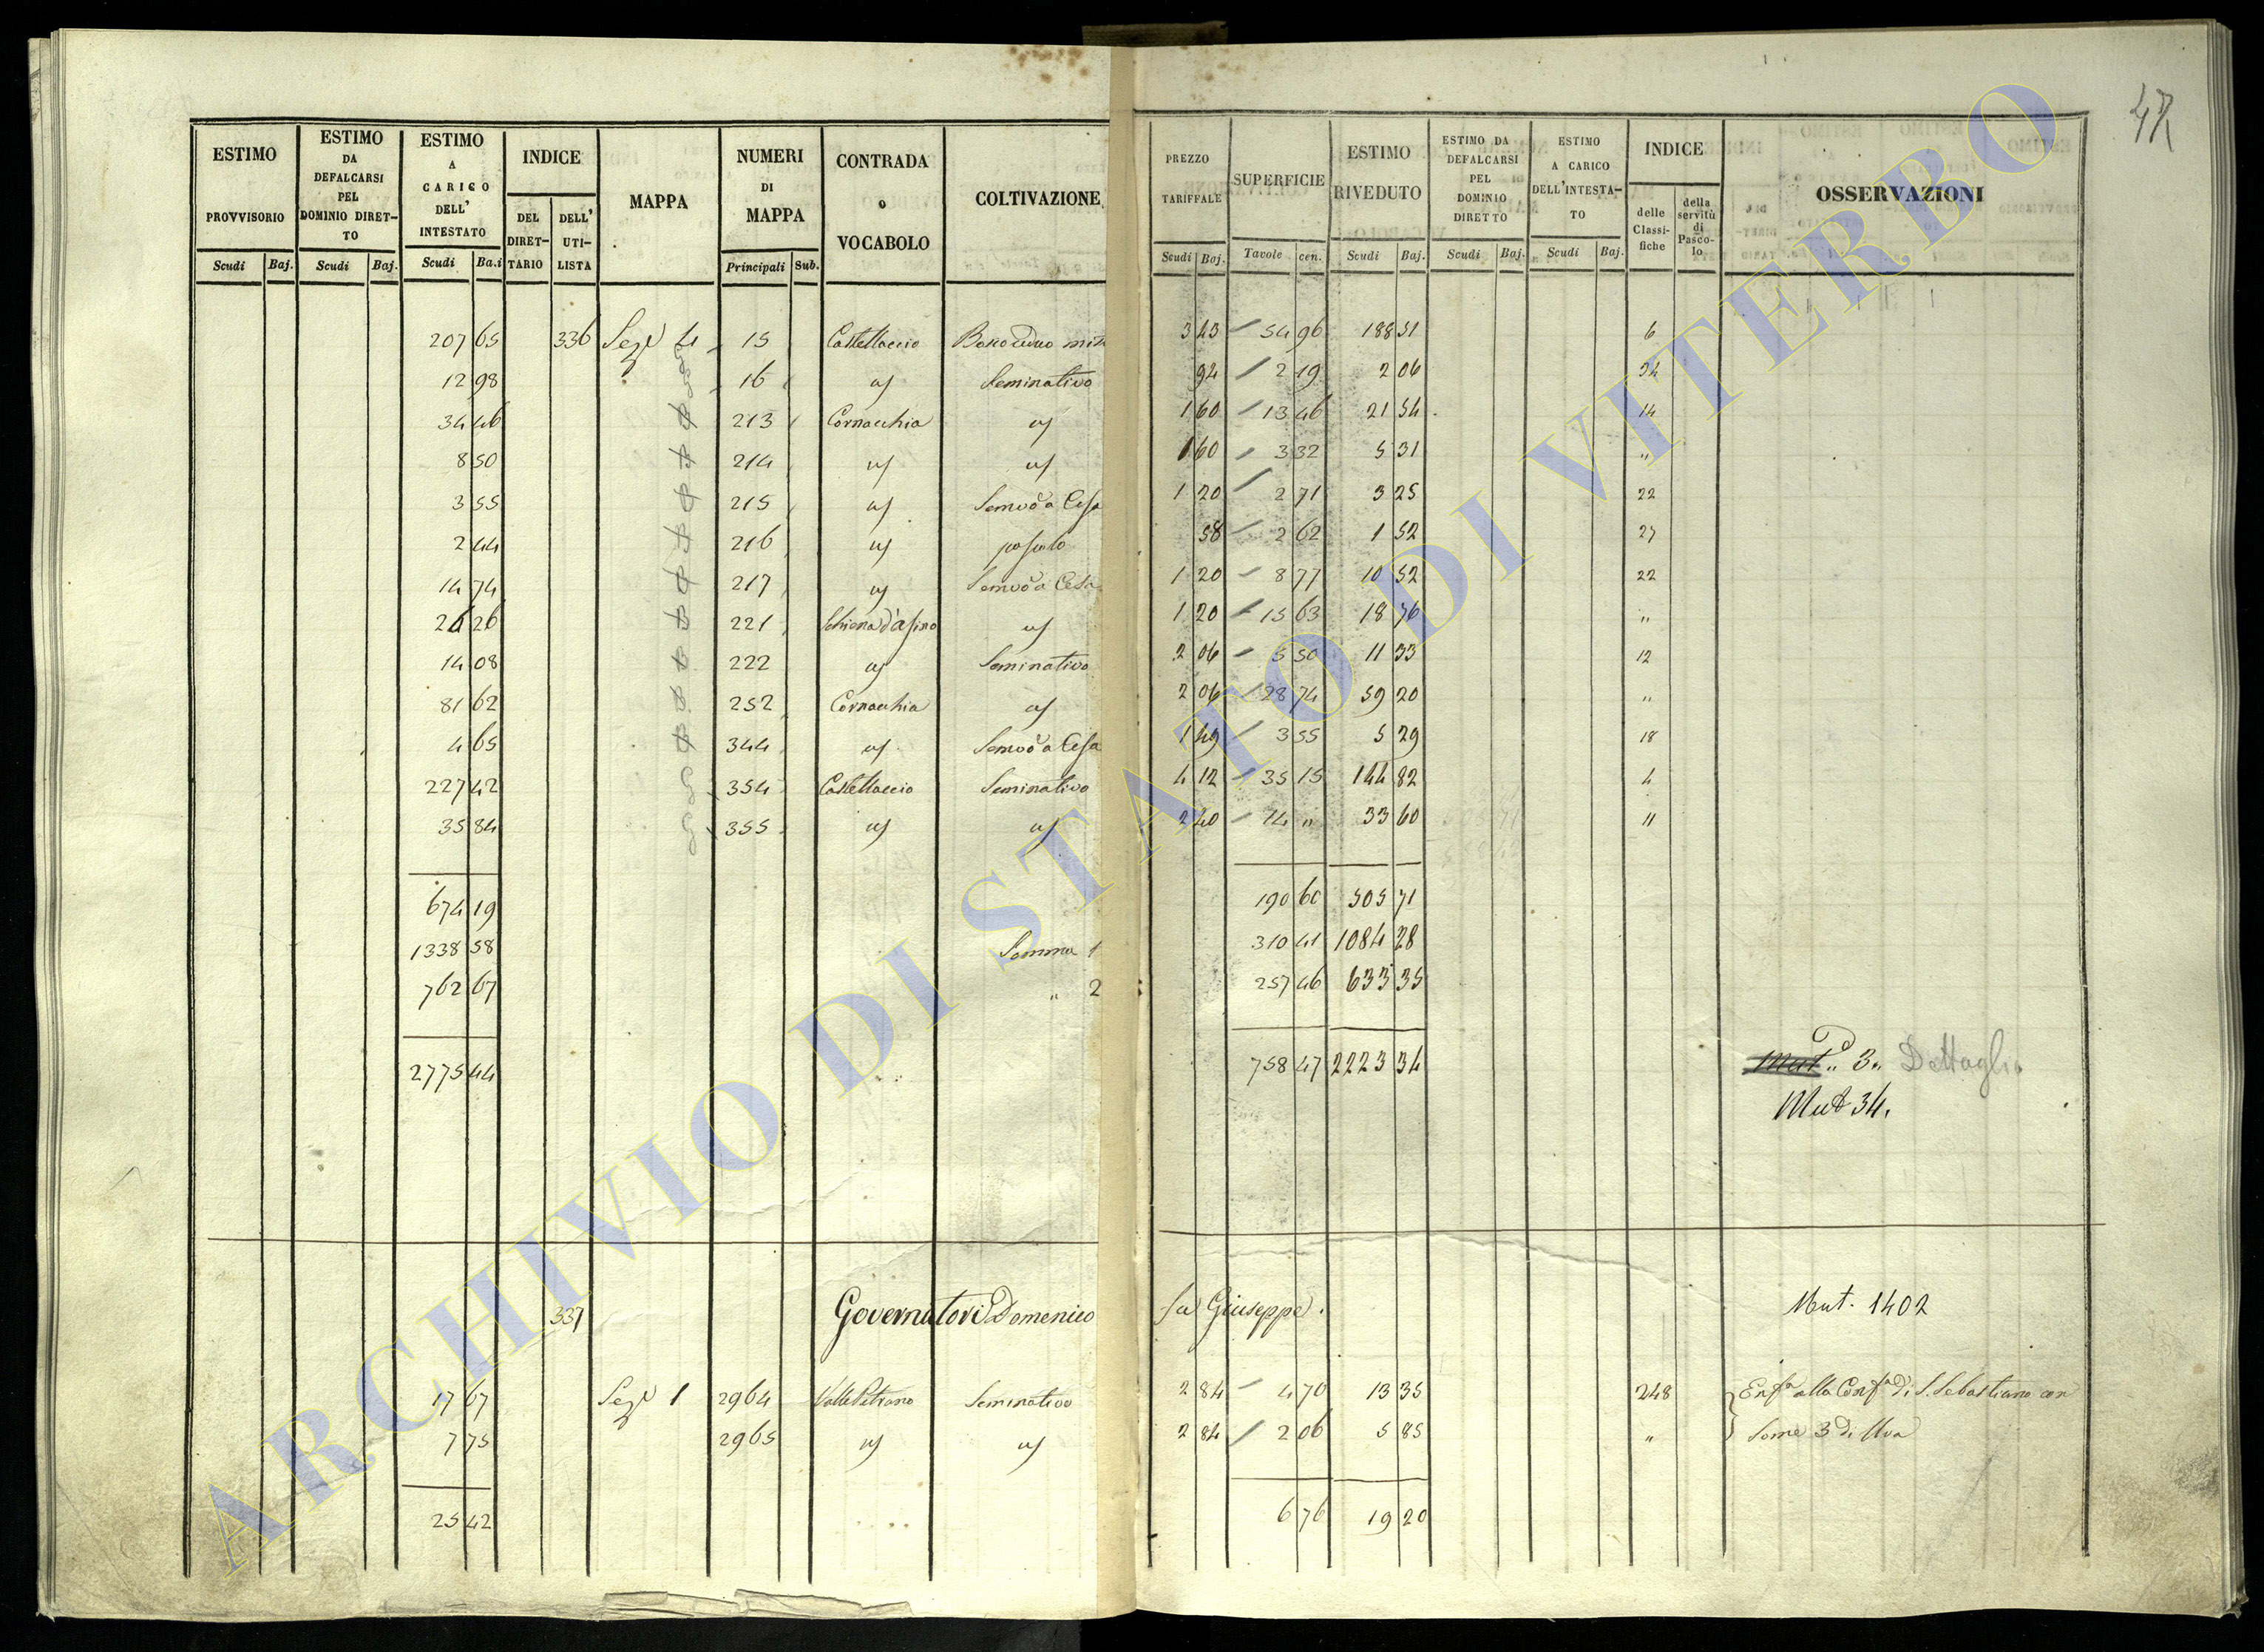 47
ESTIMO PROVVISORIO Scudi Baj.
ESTIMO DA DEFALCARSI PEL DOMINIO DIRETTO Scudi Baj.
ESTIMO A CARICO DELL' INTESTATO Scudi Ba.i
INDICE DEL DIRETTARIO DELL' UTILISTA
MAPPA
NUMERI DI MAPPA Principali Sub.
CONTRADA o VOCABOLO
COLTIVAZIONE
PREZZO TARIFFALE Scudi Baj.
SUPERFICIE Tavole cen.
ESTIMO RIVEDUTO Scudi Baj.
ESTIMO DA DEFALCARSI PEL DOMINIO DIRETTO Scudi Baj.
ESTIMO A CARICO DELL'INTESTATO Scudi Baj.
INDICE delle Classifiche della servitù di Pascolo
OSSERVAZIONI
207 65 336 Sez.e 4 15 Castellaccio Bosco ceduo 3 43 54 96 188 51 6
12 98 16 " Seminativo 94 2 19 2 06 34
34 46 213 Cornacchia " 1 60 13 46 21 54 14
8 50 214 " " 1 60 3 32 5 31 "
3 55 215 " Semvo a Cesa 1 20 2 71 3 25 22
2 44 216 " pascolo 58 2 62 1 52 27
14 74 217 " Semvo a Cesa 1 20 8 77 10 52 22
26 26 221 Schiena d'asino " 1 20 15 63 18 76 "
14 08 222 " Seminativo 2 06 5 50 11 33 12
81 62 252 Cornacchia " 2 06 28 74 59 20 "
4 65 344 " Semvo a Cesa 1 49 3 55 5 29 18
227 42 354 Castellaccio Seminativo 4 12 35 15 144 82 4
35 84 355 " " 2 40 14 " 33 60 11
674 19 190 60 505 71
1338 58 Somma 1 310 41 1084 28
762 67 " 2 257 46 633 35
2775 44 758 47 2223 34 Mut. " 3. Dettaglio
Mut 34.
337 Governatori Domenico fu Giuseppe. Mut. 1402
17 67 Sez.e 1 2964 Valle Petrano Seminativo 2 84 4 70 13 35 248 Enfa alla Confa di S. Sebastiano con
7 75 2965 " " 2 84 2 06 5 85 " Some 3 di Uva
25 42 6 76 19 20
ARCHIVIO DI STATO DI VITERBO